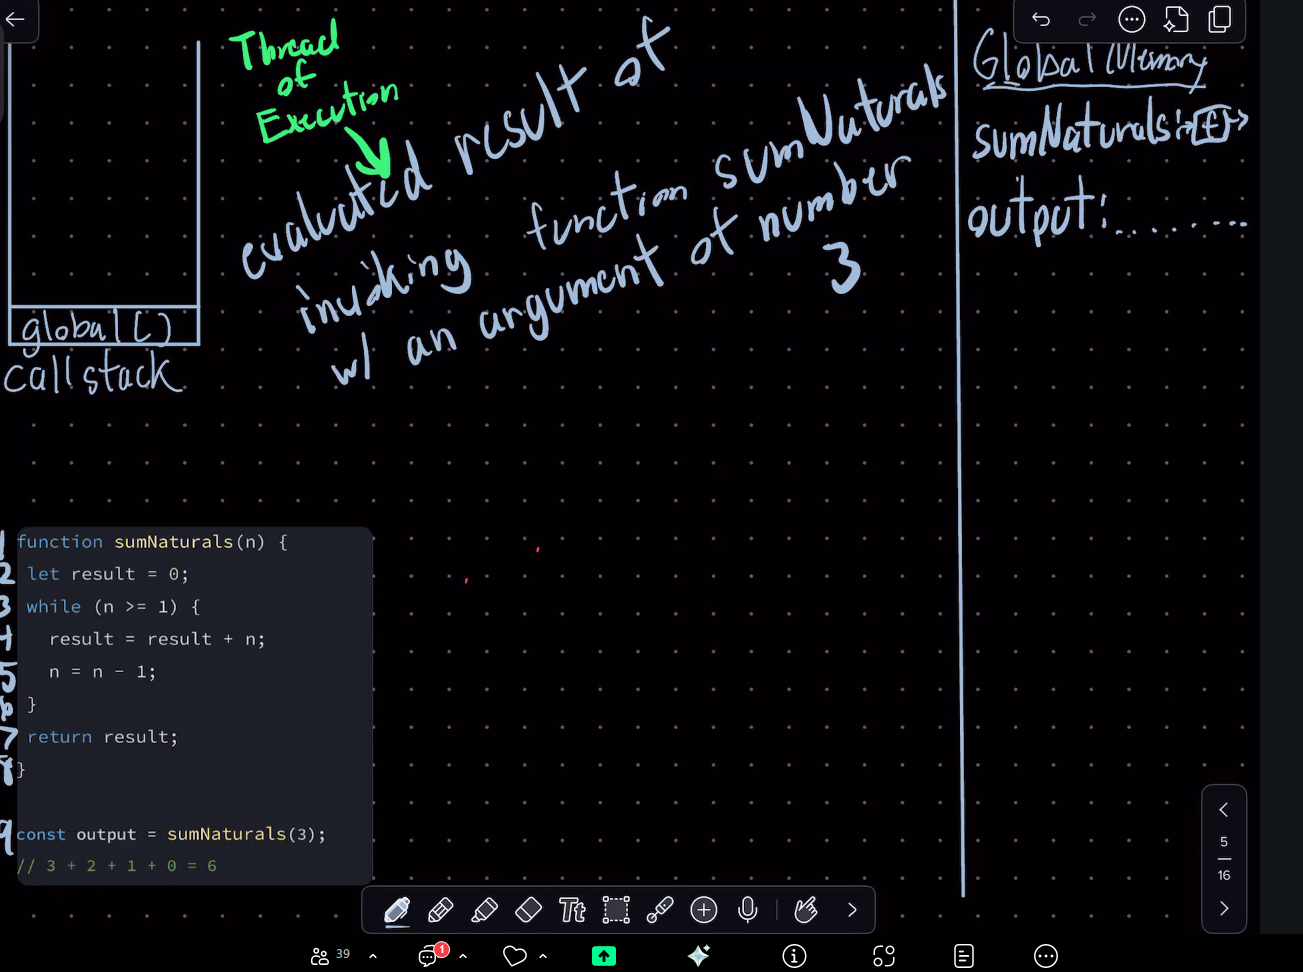 Thread
of
Execution
evaluated result of
invoking function sumNaturals
w/ an argument of number
3
global()
callstack
Global Memory
sumNaturals:→[f]→
output:........
1 function sumNaturals(n) {
2 let result = 0;
3 while (n >= 1) {
4 result = result + n;
5 n = n - 1;
6 }
7 return result;
8 }
9 const output = sumNaturals(3);
// 3 + 2 + 1 + 0 = 6
5
16
Tt
39
1